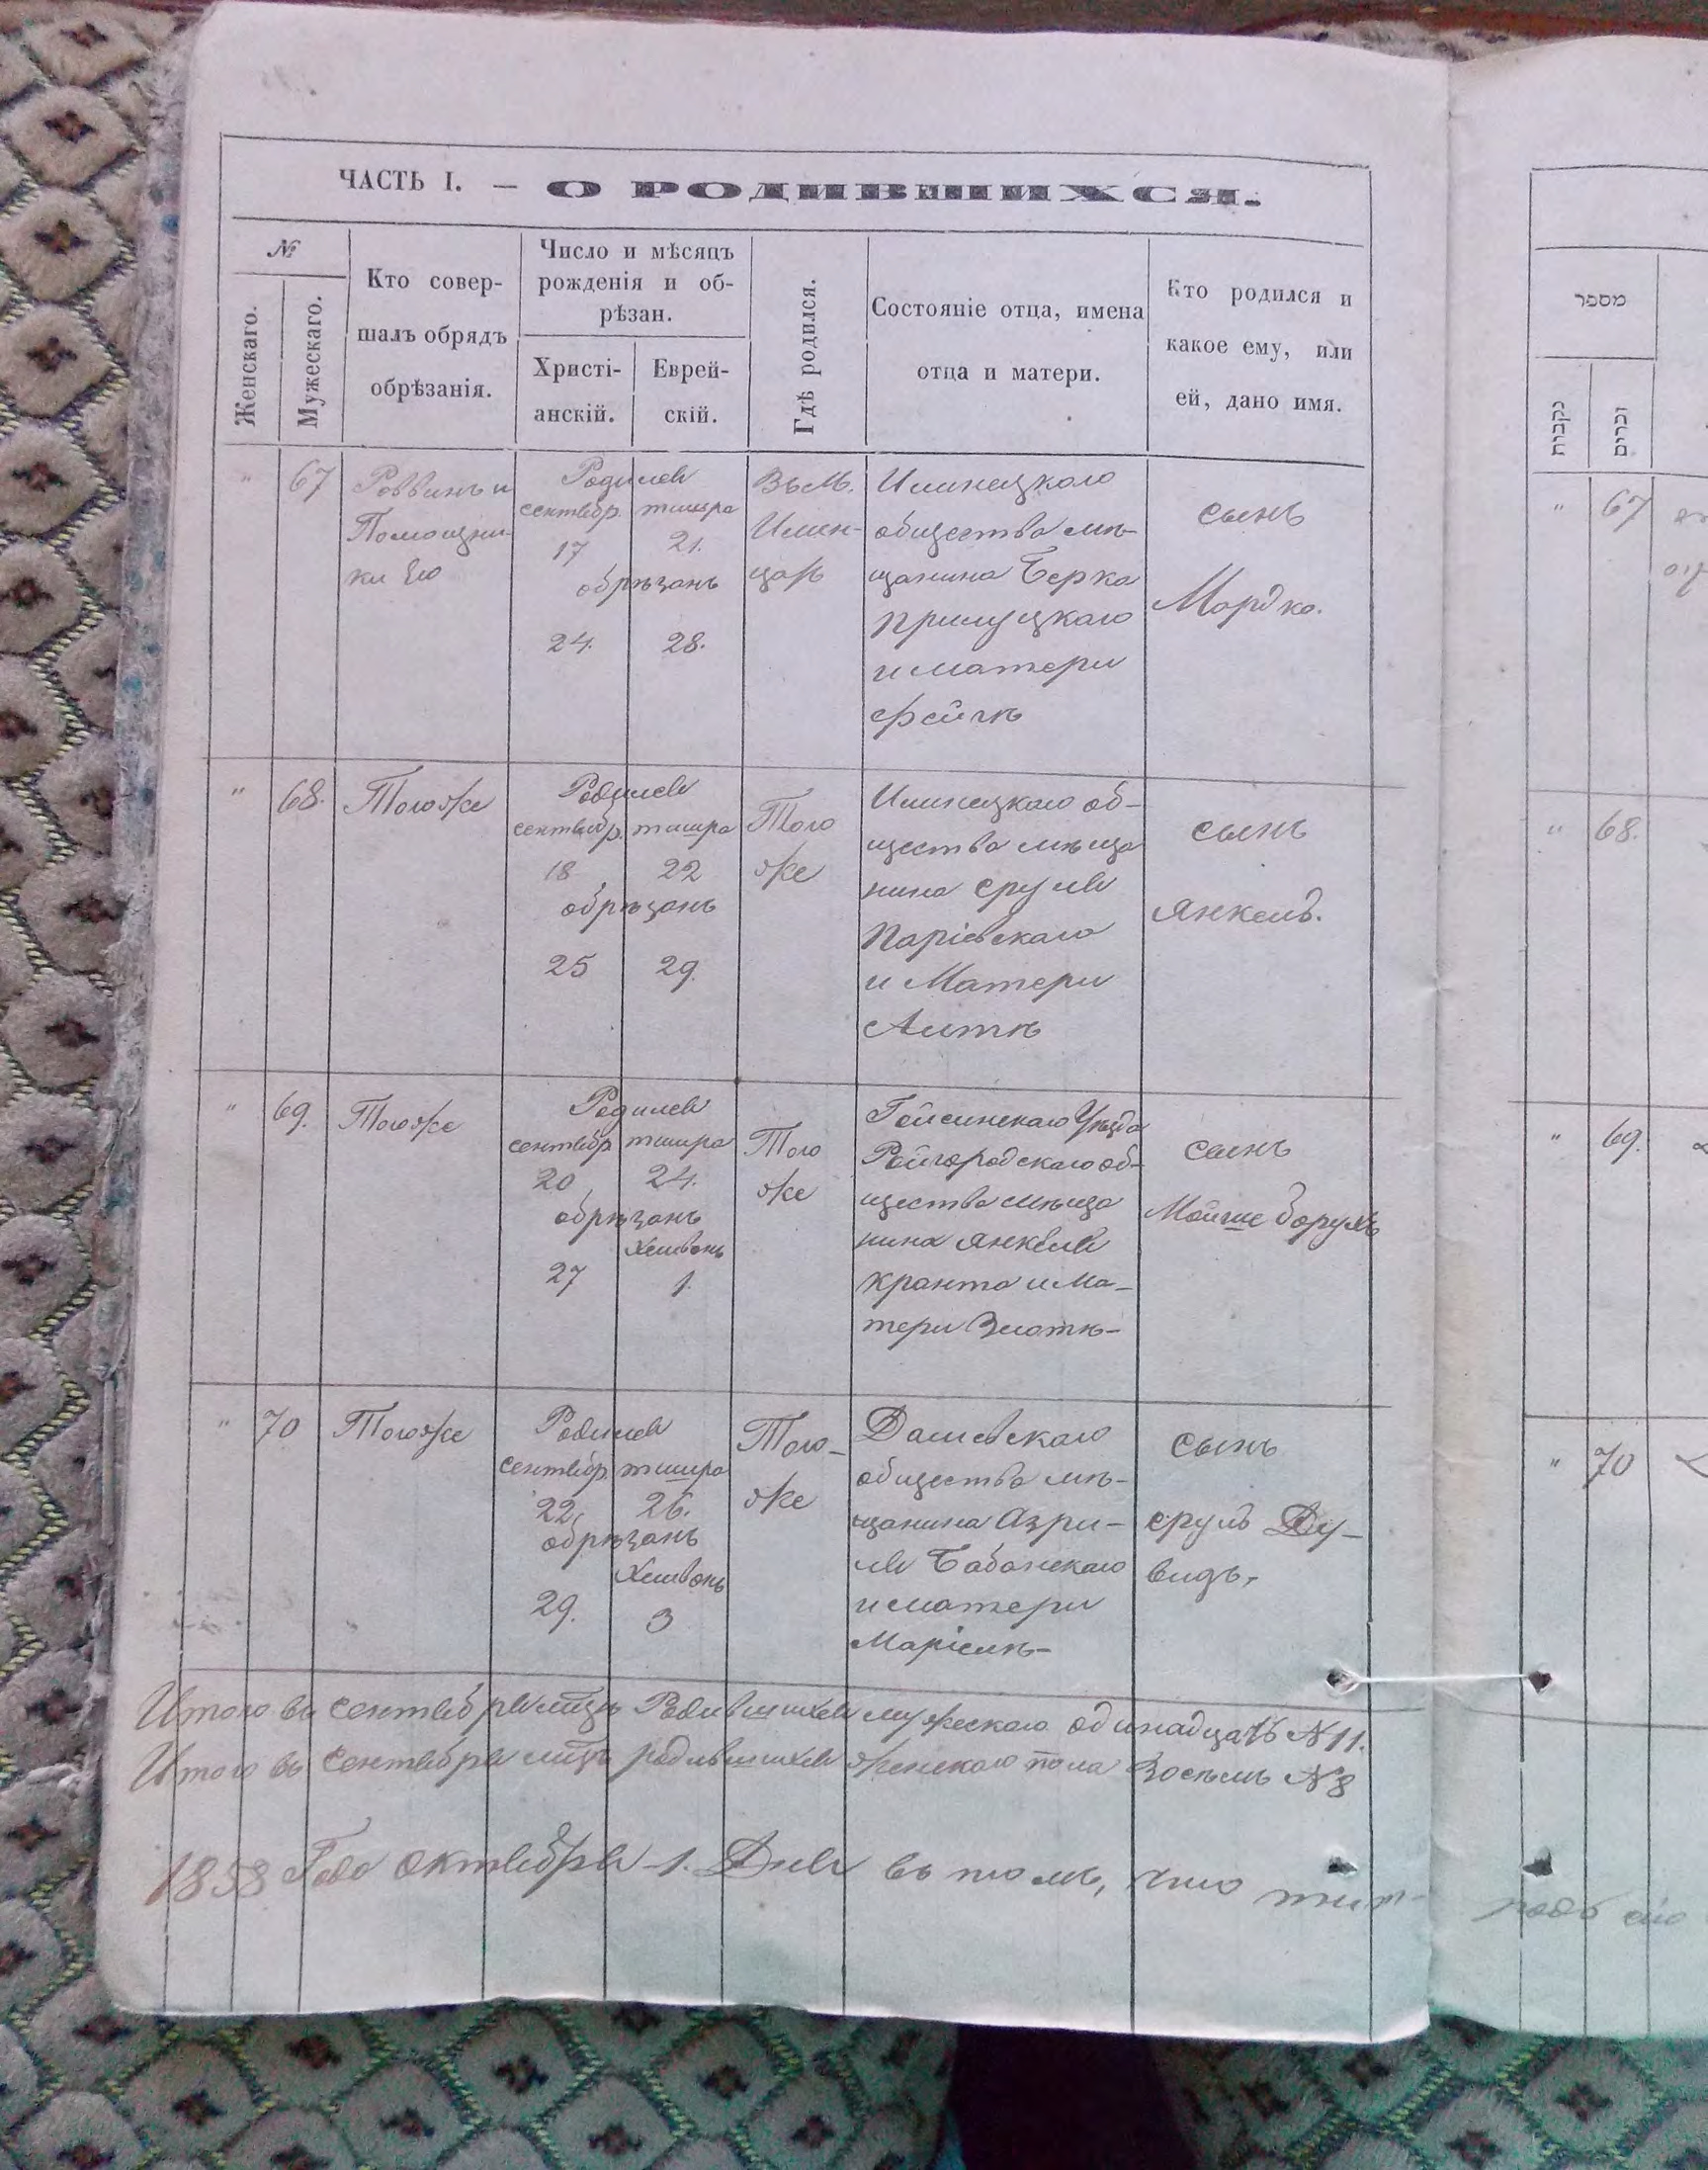 ЧАСТЬ I. — О РОДИВШИХСЯ.
№
Женскаго.
Мужескаго.
Кто совер-
шалъ обрядъ
обрѣзанія.
Число и мѣсяцъ
рожденія и об-
рѣзан.
Христі-
анскій.
Еврей-
скій.
Гдѣ родился.
Состояніе отца, имена
отца и матери.
Кто родился и
какое ему, или
ей, дано имя.
" 67
Раввинъ и
Помощни-
ки Его
Родился
сентябр. тишра
17 21.
обрѣзанъ
24. 28.
Въ М.
Илин-
цахъ
Илинецкаго
общества мѣ-
щанина Берка
Прилуцкаго
и матери
Фейгѣ
сынъ
Мордко.
" 68.
Тогоже
Родился
сентябр. тишра
18 22
обрѣзанъ
25 29.
Того
же
Илинецкаго об-
щества мѣща
нина Сруля
Паріевскаго
и Матери
Литѣ
сынъ
Янкель.
" 69.
Тогоже
Родился
сентябр тишра
20 24.
обрѣзанъ
Хешвань
27 1.
Того
же
Гайсинскаго Уѣзда
Райгородскаго об-
щества мѣща
нина Янкеля
Кранта и Ма-
тери Злотѣ-
сынъ
Мойше Борухъ
" 70
Тогоже
Родился
сентябр. тишра
22, 26.
обрѣзанъ
Хешвань
29. 3
Того-
же
Дашевскаго
общества мѣ-
щанина Азри-
ля Бабанскаго
и матери
Маріемѣ-
сынъ
Сруль Ду-
видъ,
Итого въ сентябрѣ мцѣ Родившихся мужескаго одинадцать № 11.
Итого въ Сентябрѣ мцѣ родившихся женскаго пола Восемь № 8
1858 Года октября 1. Дня въ томъ, что
מספר
נקבות
זכרים
" 67
" 68.
" 69.
" 70